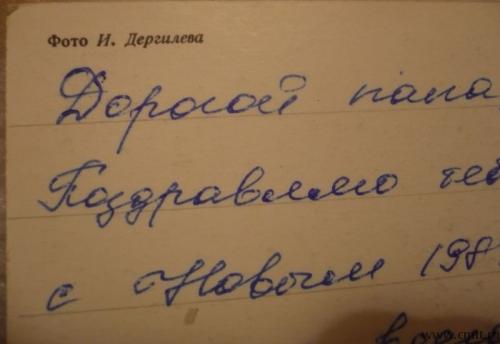 Фото И. Дергилева
Дорогой папа
Поздравляю теб
с Новым 198